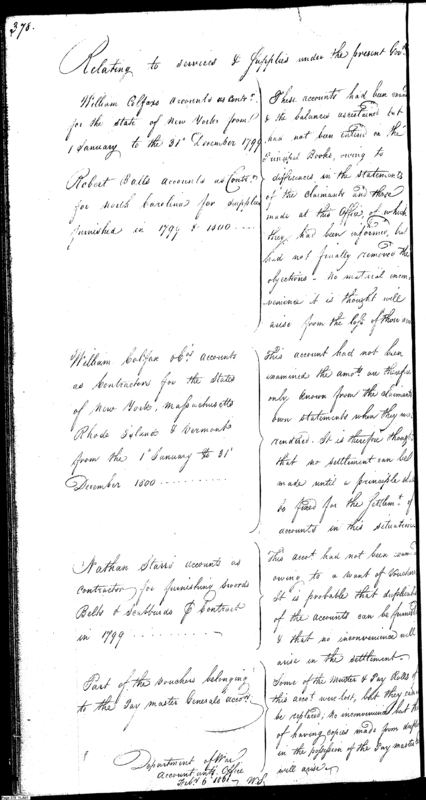 378.
Relating to services & Supplies under the present Govt.
William Colfaxs accounts as Contr.
for the state of New York from
1 January to the 31st December 1799
Robert Balls accounts as Contr.
for North Carolina for supplies
furnished in 1799 & 1800
These accounts had been
& the balances ascertained but
had not been entered on the
Principal Books, owing to
differences in the statements
of the claimants and those
made at this Office, of which
they had been informed, but
had not finally removed the
objections - No material
it is thought will
arise from the loss of those
William Colfax & Cos. accounts
as Contractors for the States
of New York, Massachusetts
Rhode Island & Vermont
from the 1st January to 31st
December 1800
This account had not been
examined the amots. are therefore
only known from the claimants
own statements when they
rendered. It is therefore thought
that no settlement can be
made until a principle
so fixed for the settlemt. of
accounts in this situation
Nathan Starrs accounts as
contractor for furnishing swords
Belts & Scabbards Contract
in 1799
This accot had not been
owing to a want of Vouchers
It is probable that
of the accounts can be furnished
& that no inconvenience will
arise in the settlement.
Part of the vouchers belonging
to the Pay master Generals accots.
Some of the Muster & Pay Rolls of
this accot were lost, but they can
be replaced; No inconvenience but
of having copies made from
in the possession of the Pay master
will arise.
Department of War
Accountants Office
Feby. 6 1801 WS